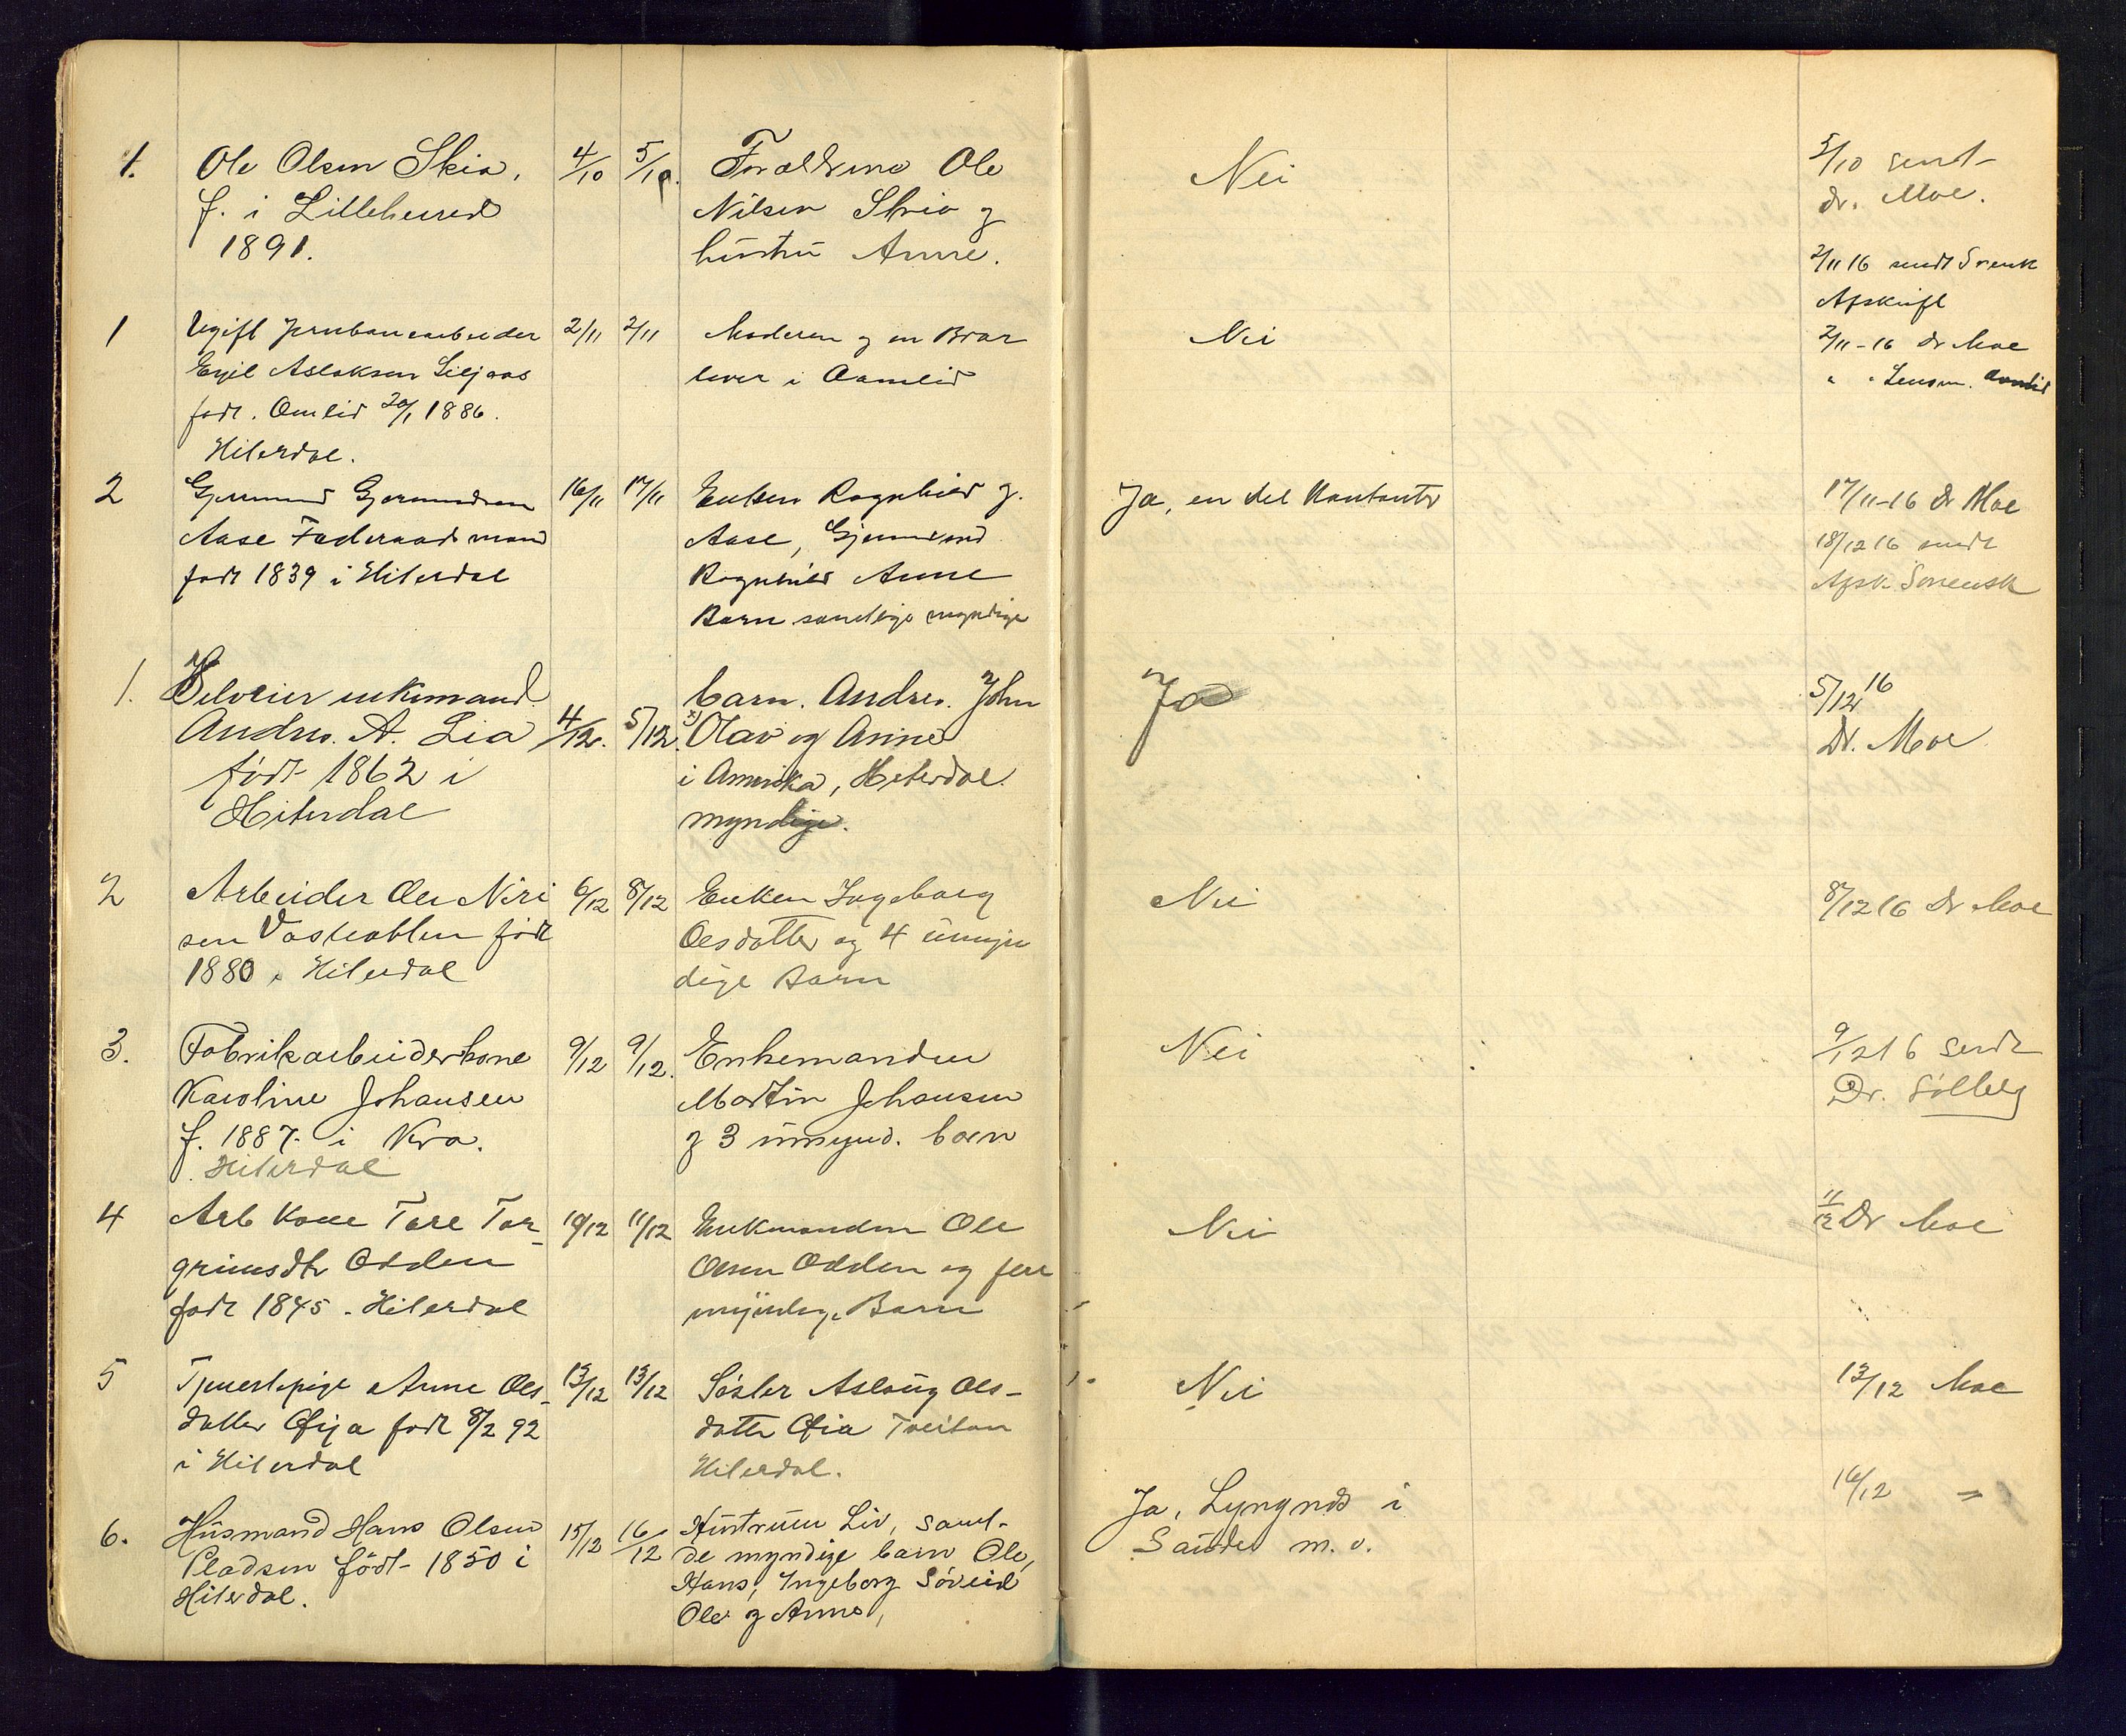 1. Ole Olsen Skia, 4/10 5/10. Forældrene Ole Nei 5/10 sendt
f. i Lilleherred Nilsen Skia og dr. Moe.
1891. hustru Anne.
2/11 16 sendt Svensk
Afskrift
1 Ugift Jernbanearbeider 2/11 2/11 Moderen og en Bror Nei 2/11-16 Dr Moe
Eyil Aslaksen Liljaas lever i Aamlid " " Lensm. Aamlid
født. Omlid 20/1 1886.
Hiterdal.
2 Gjermund Gjermundsen 16/11 17/11 Enken Ragnhild og Ja, en del Kontanter 17/11-16 Dr Moe
Aase Føderaadsmand Aase, Gjermund 18/12 16 sendt
født 1839 i Hiterdal Ragnhild Anne Afsk. Sorensk
Barn samtlige myndige
1. Selveier enkemand barn. Andres. John Ja 5/12 16
Andres. A. Lia 4/12. 5/12. x) Olav og Anne Dr. Moe
født 1862 i i Amerika, Heterdal.
Hiterdal myndige.
2 Arbeider Ole Niri 6/12 8/12 Enken Ingeborg Nei 8/12 16 Dr Moe
sen født Olsdatter og 4 umyn
1880 i Hiterdal dige Barn
3. Fabrikarbeiderkone 9/12 9/12. Enkemanden Nei 9/12 16 sendt
Karoline Johansen Martin Johansen Dr. Solberg
f. 1887. i Kra. og 3 umynd. barn
Hiterdal
4 Arb Kone Tore Tor- 10/12 11/12 Enkemanden Ole Nei 11/12 Dr Moe
grimsdtr Odden Olsen Odden og fem
født 1845. Hiterdal myndige Barn
5 Tjenestepige Anne Ols- 13/12 13/12 Søster Aslaug Ols- Nei 13/12 Moe
datter Øija født 8/2 92 datter Øia Tveitan
i Hiterdal Hiterdal.
6. Husmand Hans Olsen 15/12 16/12 Hustruen Liv, samt- Ja, Lyngnes i 16/12 "
Pladsen født 1850 i de myndige barn Ole, Saude m. v.
Hiterdal. Hans, Ingeborg Søveid
Ole og Anne,